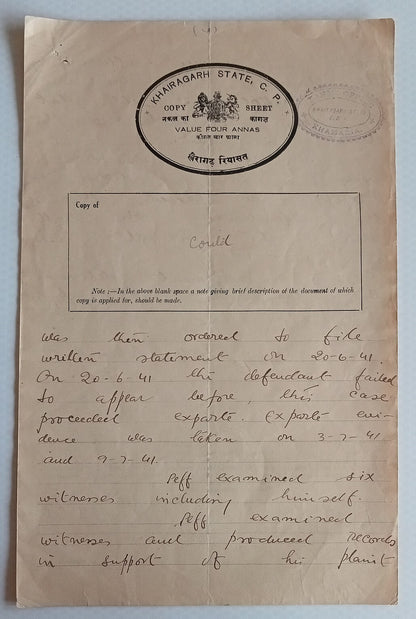 (4)
KHAIRAGARH STATE, C. P.
COPY SHEET
नकल का कागज़
VALUE FOUR ANNAS
कीमत चार आना
खैरागढ़ रियासत
KHAIRAGARH
Copy of
Could
Note :—In the above blank space a note giving brief description of the document of which
copy is applied for, should be made.
was then ordered to file
written statement on 20-6-41.
On 20-6-41 the defendant failed
to appear before, this case
proceeded exparte. Exparte evi-
dence was taken on 3-7-41
and 9-7-41.
Peff examined six
witnesses including himself.
Peff examined
witnesses and produced records
in support of his plaint